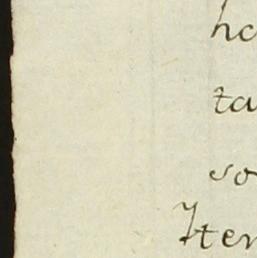 ha
ta
so
Iten